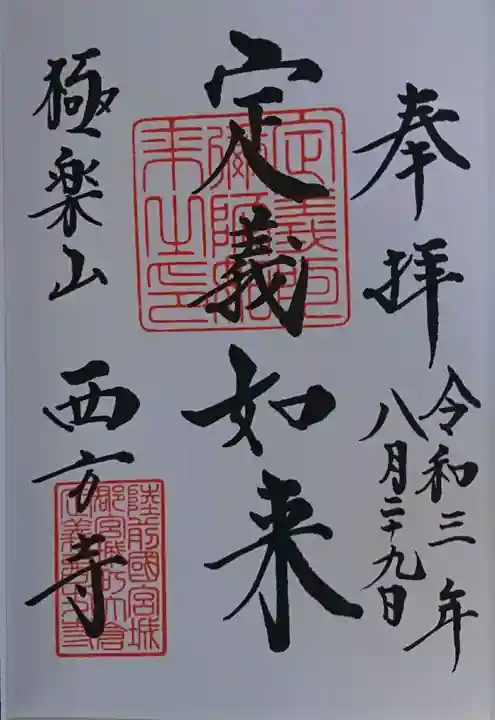 奉拝
令和三年
八月二十九日
定義如来
極楽山 西方寺